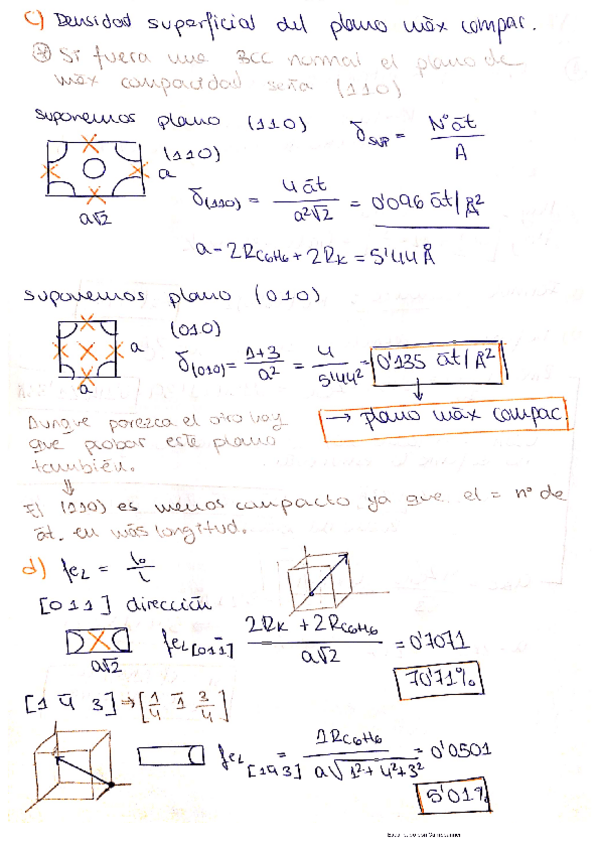 c) Densidad superficial del plano máx compac.
* Si fuera una BCC normal el plano de
máx compacidad sería (110)
suponemos plano (110)
δsup = Nº át / A
(110)
a
a√2
δ(110) = 4 át / a²√2 = 0'096 át/Å²
a = 2RC6H6 + 2RK = 5'44 Å
suponemos plano (010)
(010)
a
a
δ(010) = 1+3 / a² = 4 / 5'44² = 0'135 át/Å²
→ plano máx compac.
Aunque parezca el otro hay
que probar este plano
también.
⇓
El (110) es menos compacto ya que el = nº de
át. en más longitud.
d) feL = lo / l
[011] dirección
a√2
feL[011] 2RK + 2RC6H6 / a√2 = 0'7071
70'71%
[1 4̄ 3] → [1/4 1̄ 3/4]
feL[143] = 1RC6H6 / a√1²+4²+3² = 0'0501
5'01%